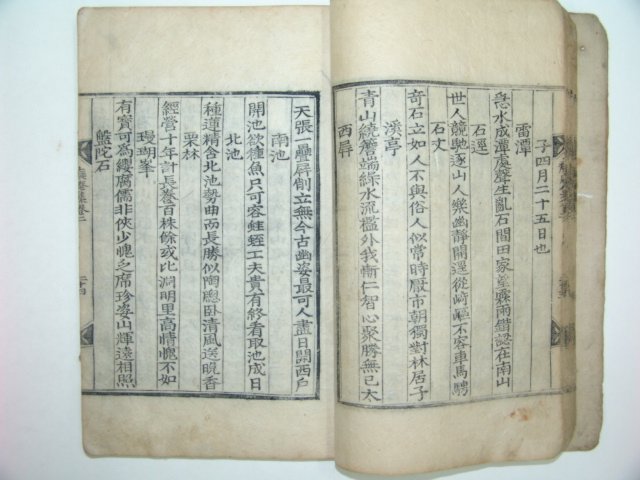 子四月二十五日也
雷潭
急水成潭處聲生亂石間田家望驟雨錯認在南山
石逕
世人競馳逐山人樂幽靜開逕從崎嶇不容車馬騁
石丈
奇石立如人不與俗人似常時厭市朝獨對林居子
溪亭
青山繞簷端綠水流檻外我慚仁智心聚勝無已太
西屛
天張一疊屛削立無今古幽姿最可人盡日開西戶
南池
開池欲種魚只可容蛙蛭工夫貴有終看取池成日
北池
種蓮精舍北池勢曲而長勝似陶窓卧清風送晩香
栗林
經營十年計長養百株餘或比淵明里高情愧不如
珊瑚峯
有寶可爲纓腐儒非俠少愧乏席珍姿山輝遠相照
盤陀石